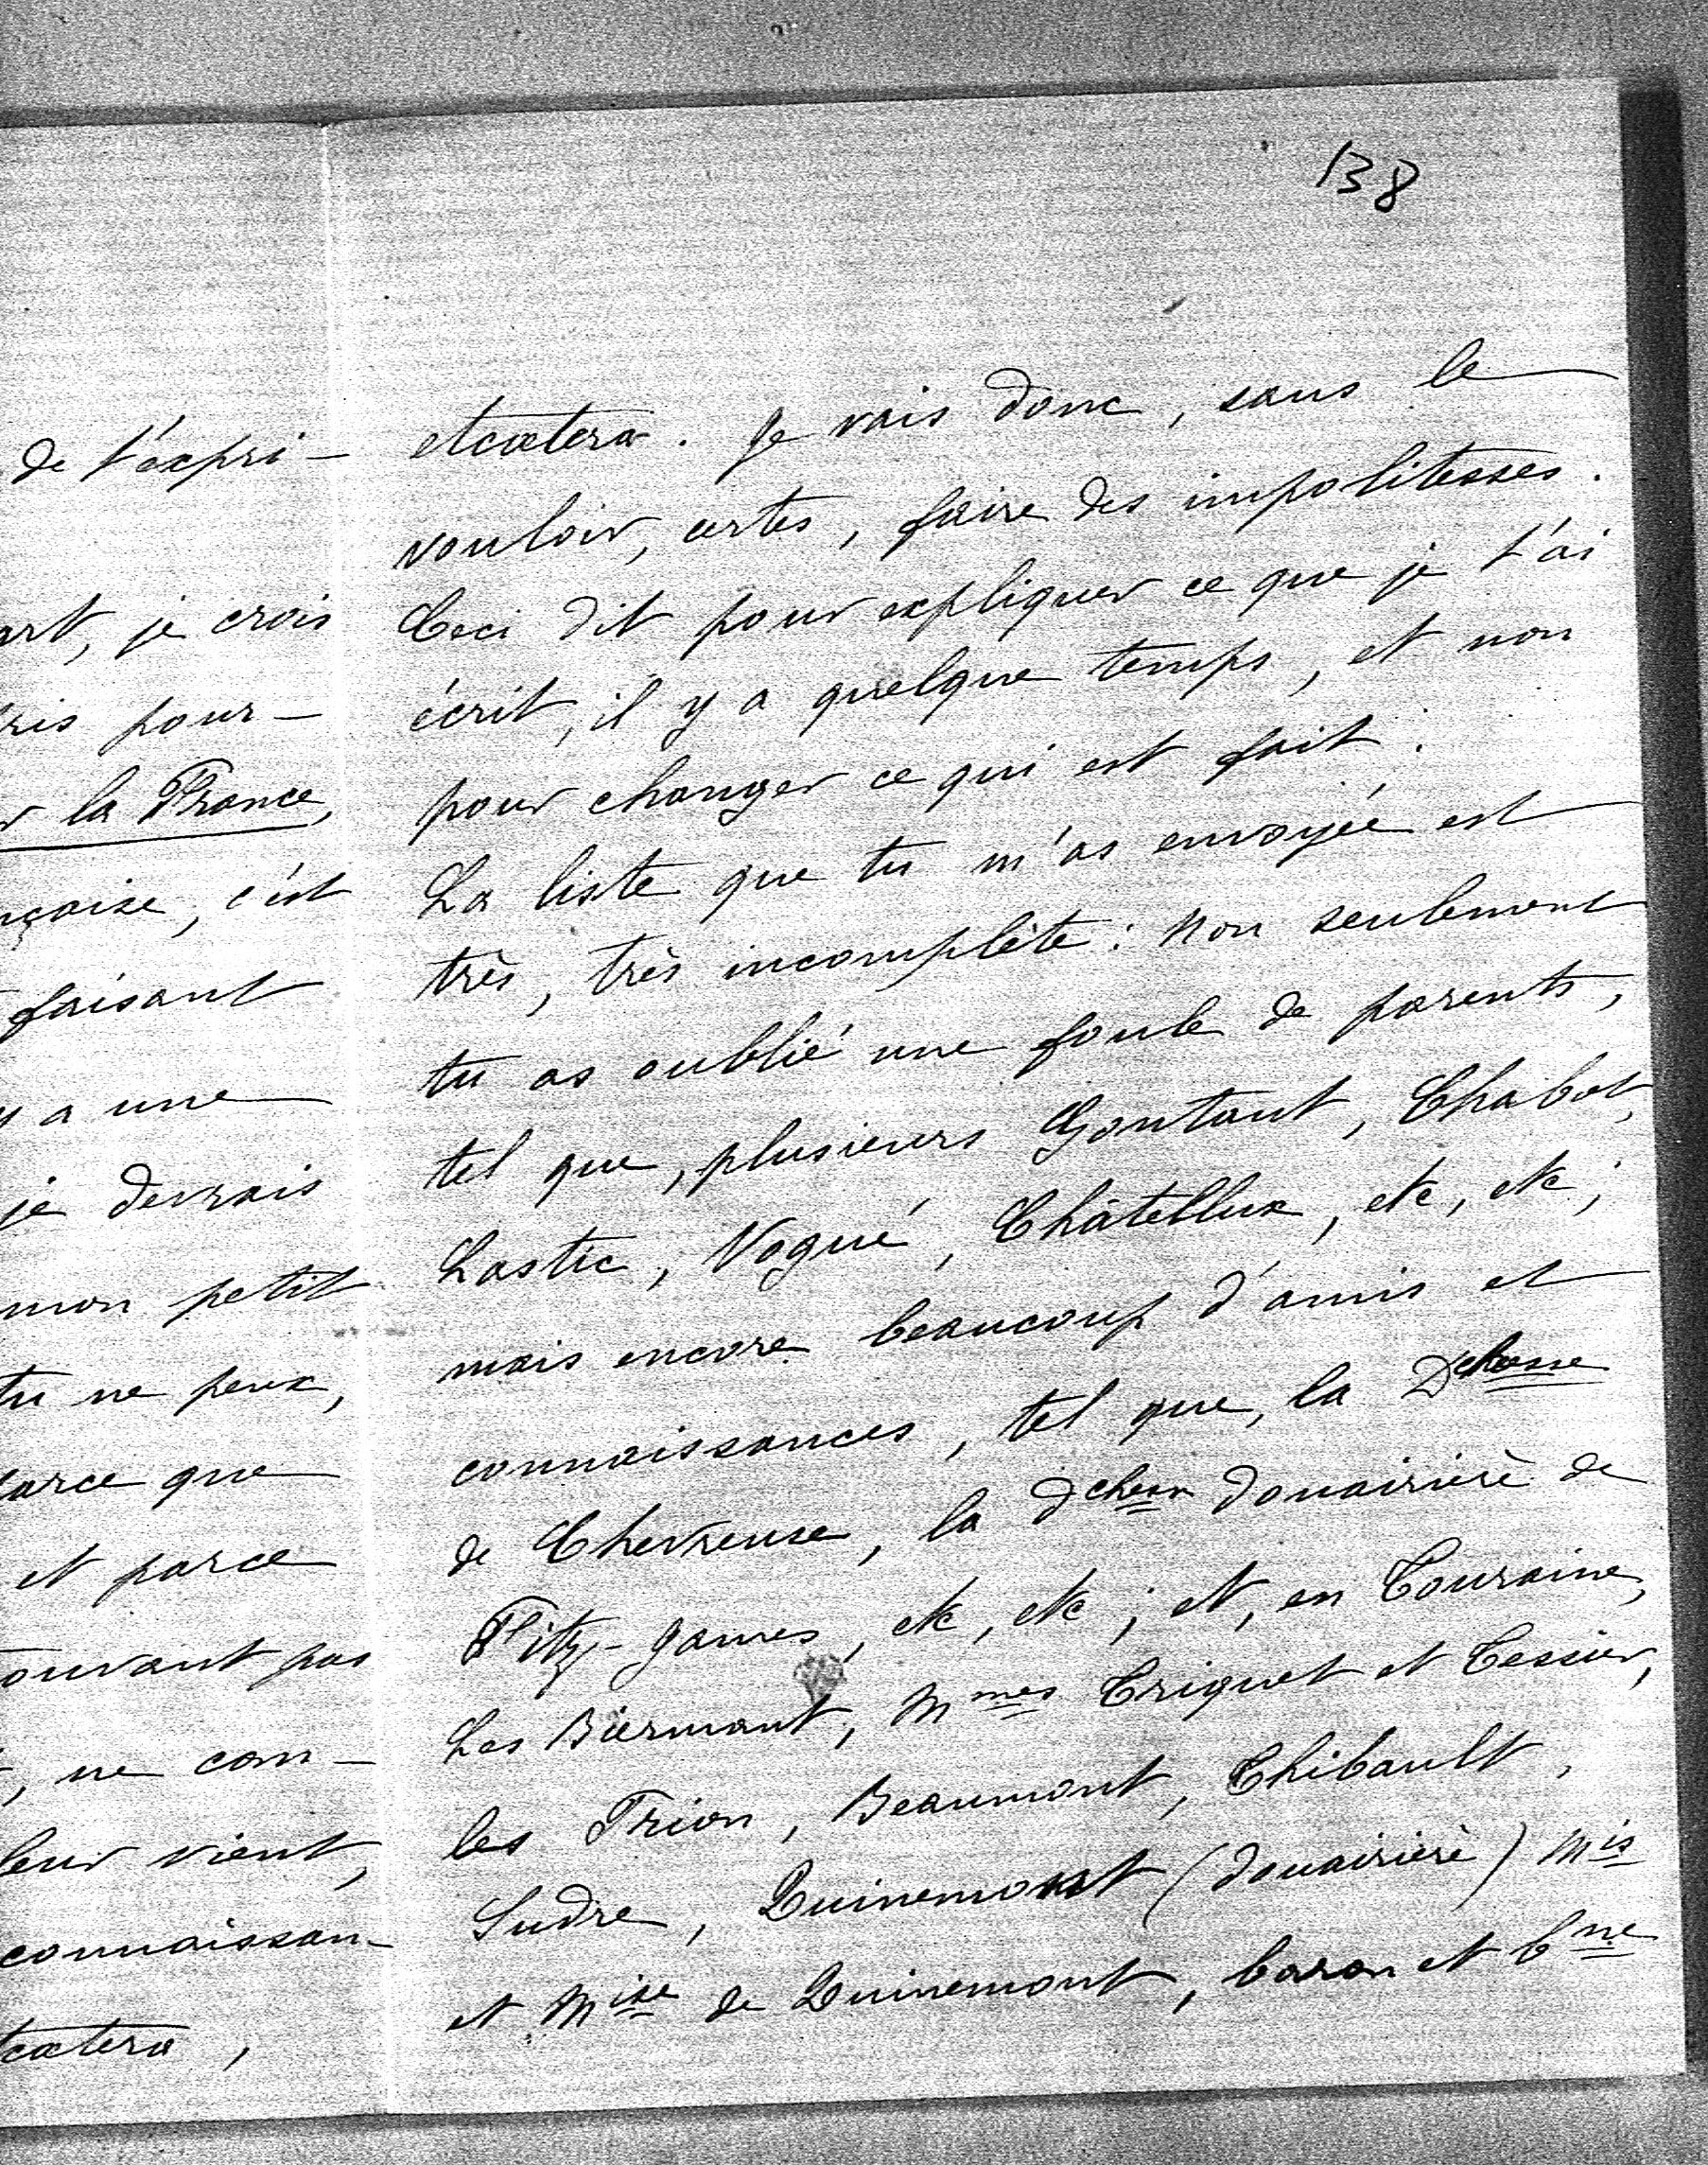 138
de t'expri-
art, je crois
ris pour-
r la France,
nçaise, c'est
faisant
y a une
je devrais
mon petit
tu ne peux,
parce que
et parce
ouvant pas
, ne con-
leur vient,
connaissan-
caetera,
etcaetera. Je vais donc, sans le
vouloir, certes, faire des impolitesses.
Ceci dit pour expliquer ce que je t'ai
écrit, il y a quelque temps, et non
pour changer ce qui est fait.
La liste que tu m'as envoyée est
très, très incomplète: non seulement
tu as oublié une foule de parents,
tel que, plusieurs Gontaut, Chabot,
Lastic, Vogüé, Châtellux, etc, etc;
mais encore beaucoup d'amis et
connaissances, tel que, la Dchesse
de Chevreuse, la dchesse douairière de
Fitz-James, etc, etc; et, en Touraine,
Les Biermont, Mmes Triquet et Tessier,
les Trion, Beaumont, Thibault,
Sudre, Quinemont (douairière) Mis
et Mise de Quinemont, baron et bne